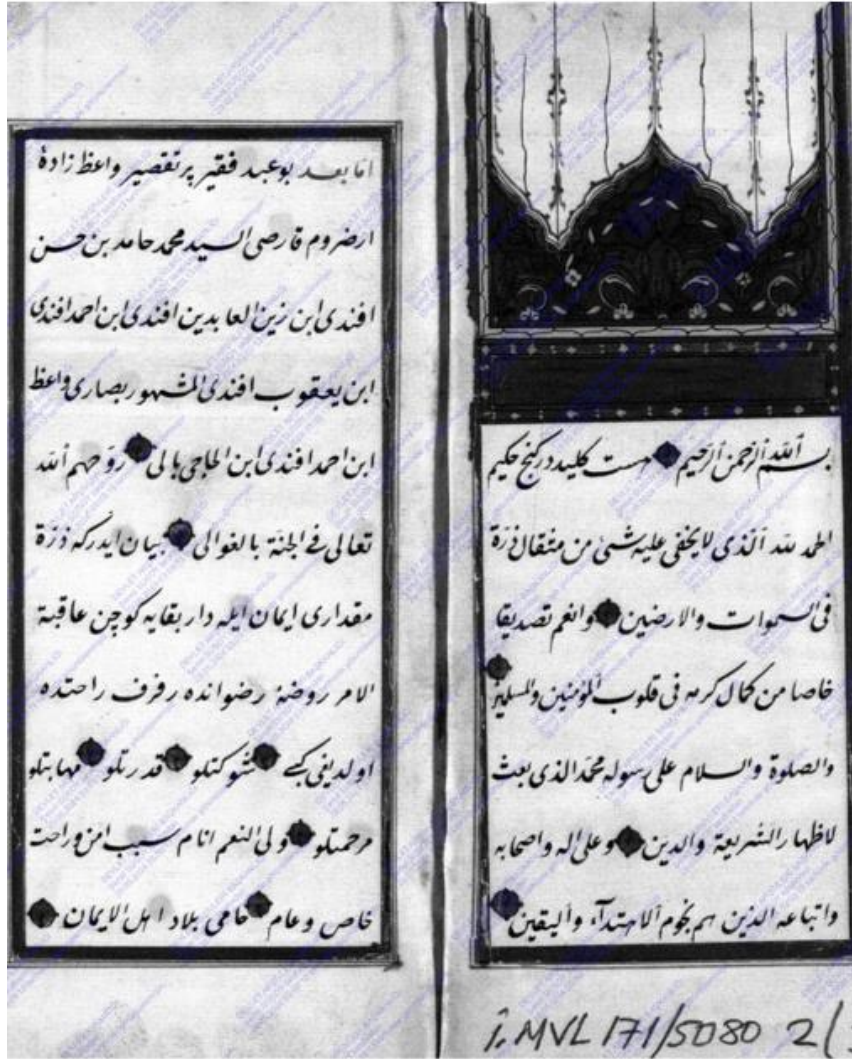 بسم الله الرحمن الرحيم هست كليد در كنج حكيم
الحمد لله الذى لا يخفى عليه شئ من مثقال ذرة
فى السموات والارضين وانعم تصديقا
خاصا من كمال كرمه فى قلوب المؤمنين والمسلمين
والصلوة والسلام على رسوله محمد الذى بعث
لاظهار الشريعة والدين وعلى اله واصحابه
واتباعه الذين هم نجوم الاهتدآء واليقين
اما بعد بو عبد فقير پر تقصير واعظ زادۀ
ارضروم قارصى السيد محمد حامد بن حسن
افندى ابن زين العابدين افندى ابن احمد افندى
ابن يعقوب افندى المشهور بصارى واعظ
ابن احمد افندى ابن الحاجى بالى روّحهم الله
تعالى فى الجنة بالغوالى بيان ايدركه ذرّة
مقدارى ايمان ايله دار بقايه كوچن عاقبة
الامر روضۀ رضوانده رفرف راحتده
اولديغى كبى شوكتلو قدرتلو مهابتلو
مرحمتلو ولى النعم انام سبب امن وراحت
خاص وعام حامى بلاد اهل الايمان
İ. MVL 171/5080 2/